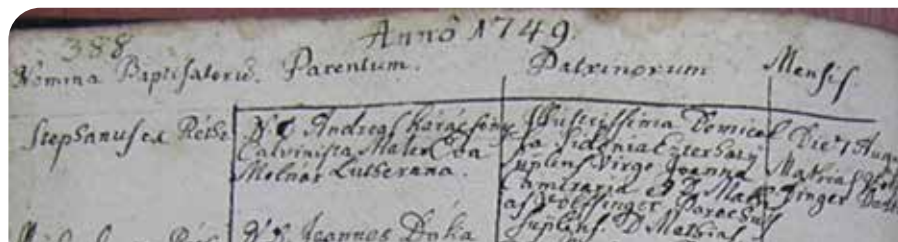 388
Annô 1749.
Nomina Baptisatoru. Parentum. Patrinorum Mensis.
Stephanus ex Réthe
N. Andreas Karácsony
Calvinista Mater Eva
Molnár Lutherana.
Illustrissima Domicel
la Sidonia Eszterhazy
suplens Virgo Joanna
Cameraria et D. Math
as Parochus
suplens. D Mathias
Die 7 Aug
Mathias
Joannes Dóka